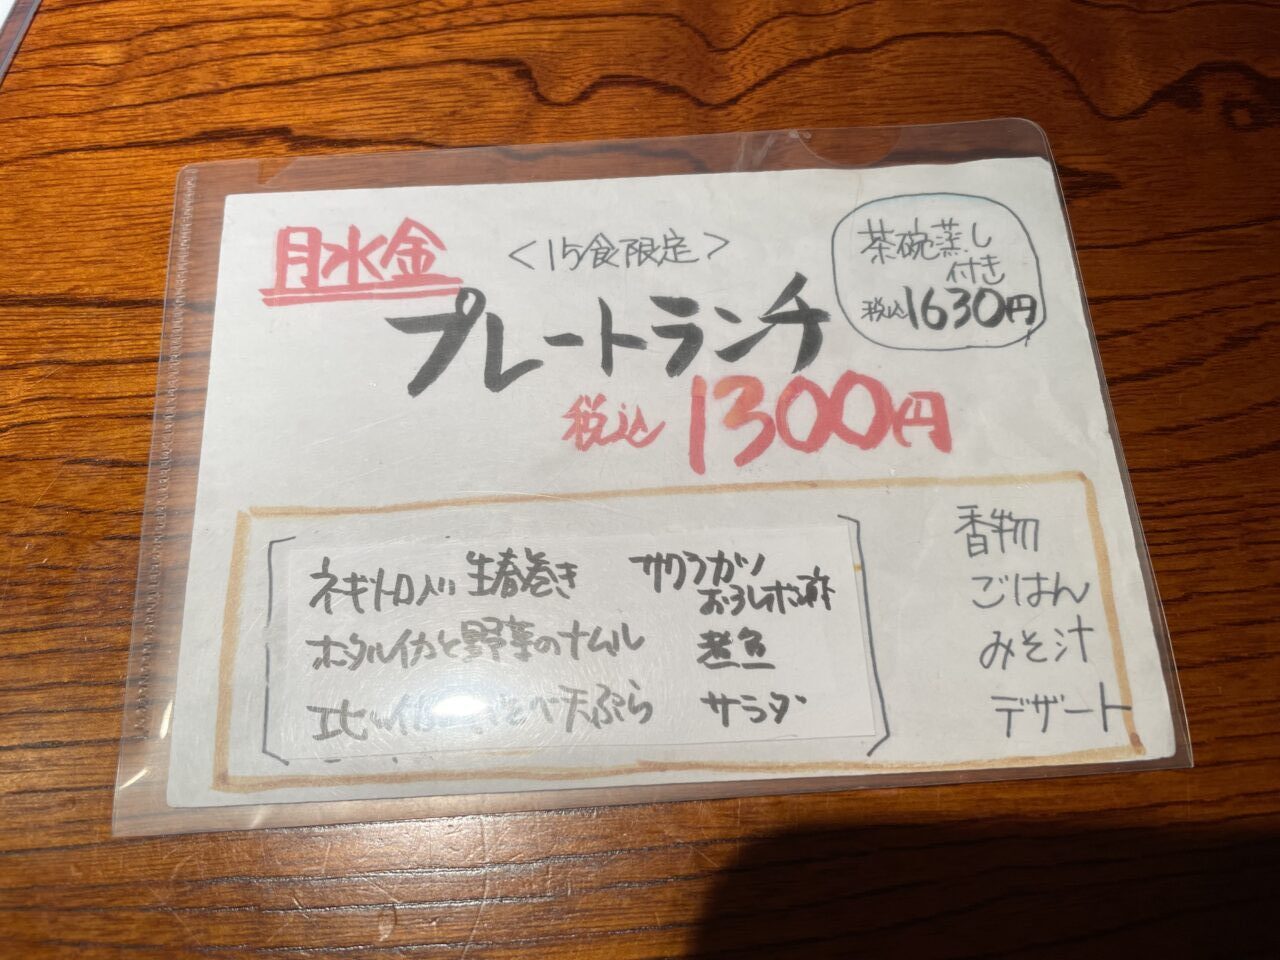 月水金
<15食限定>
茶碗蒸し
付き
税込1630円
プレートランチ
税込 1300円
ネギトロ入り生春巻き
サクラガツ
おろしポン酢
ホタルイカと野菜のナムル
煮魚
天ぷら
サラダ
香物
ごはん
みそ汁
デザート